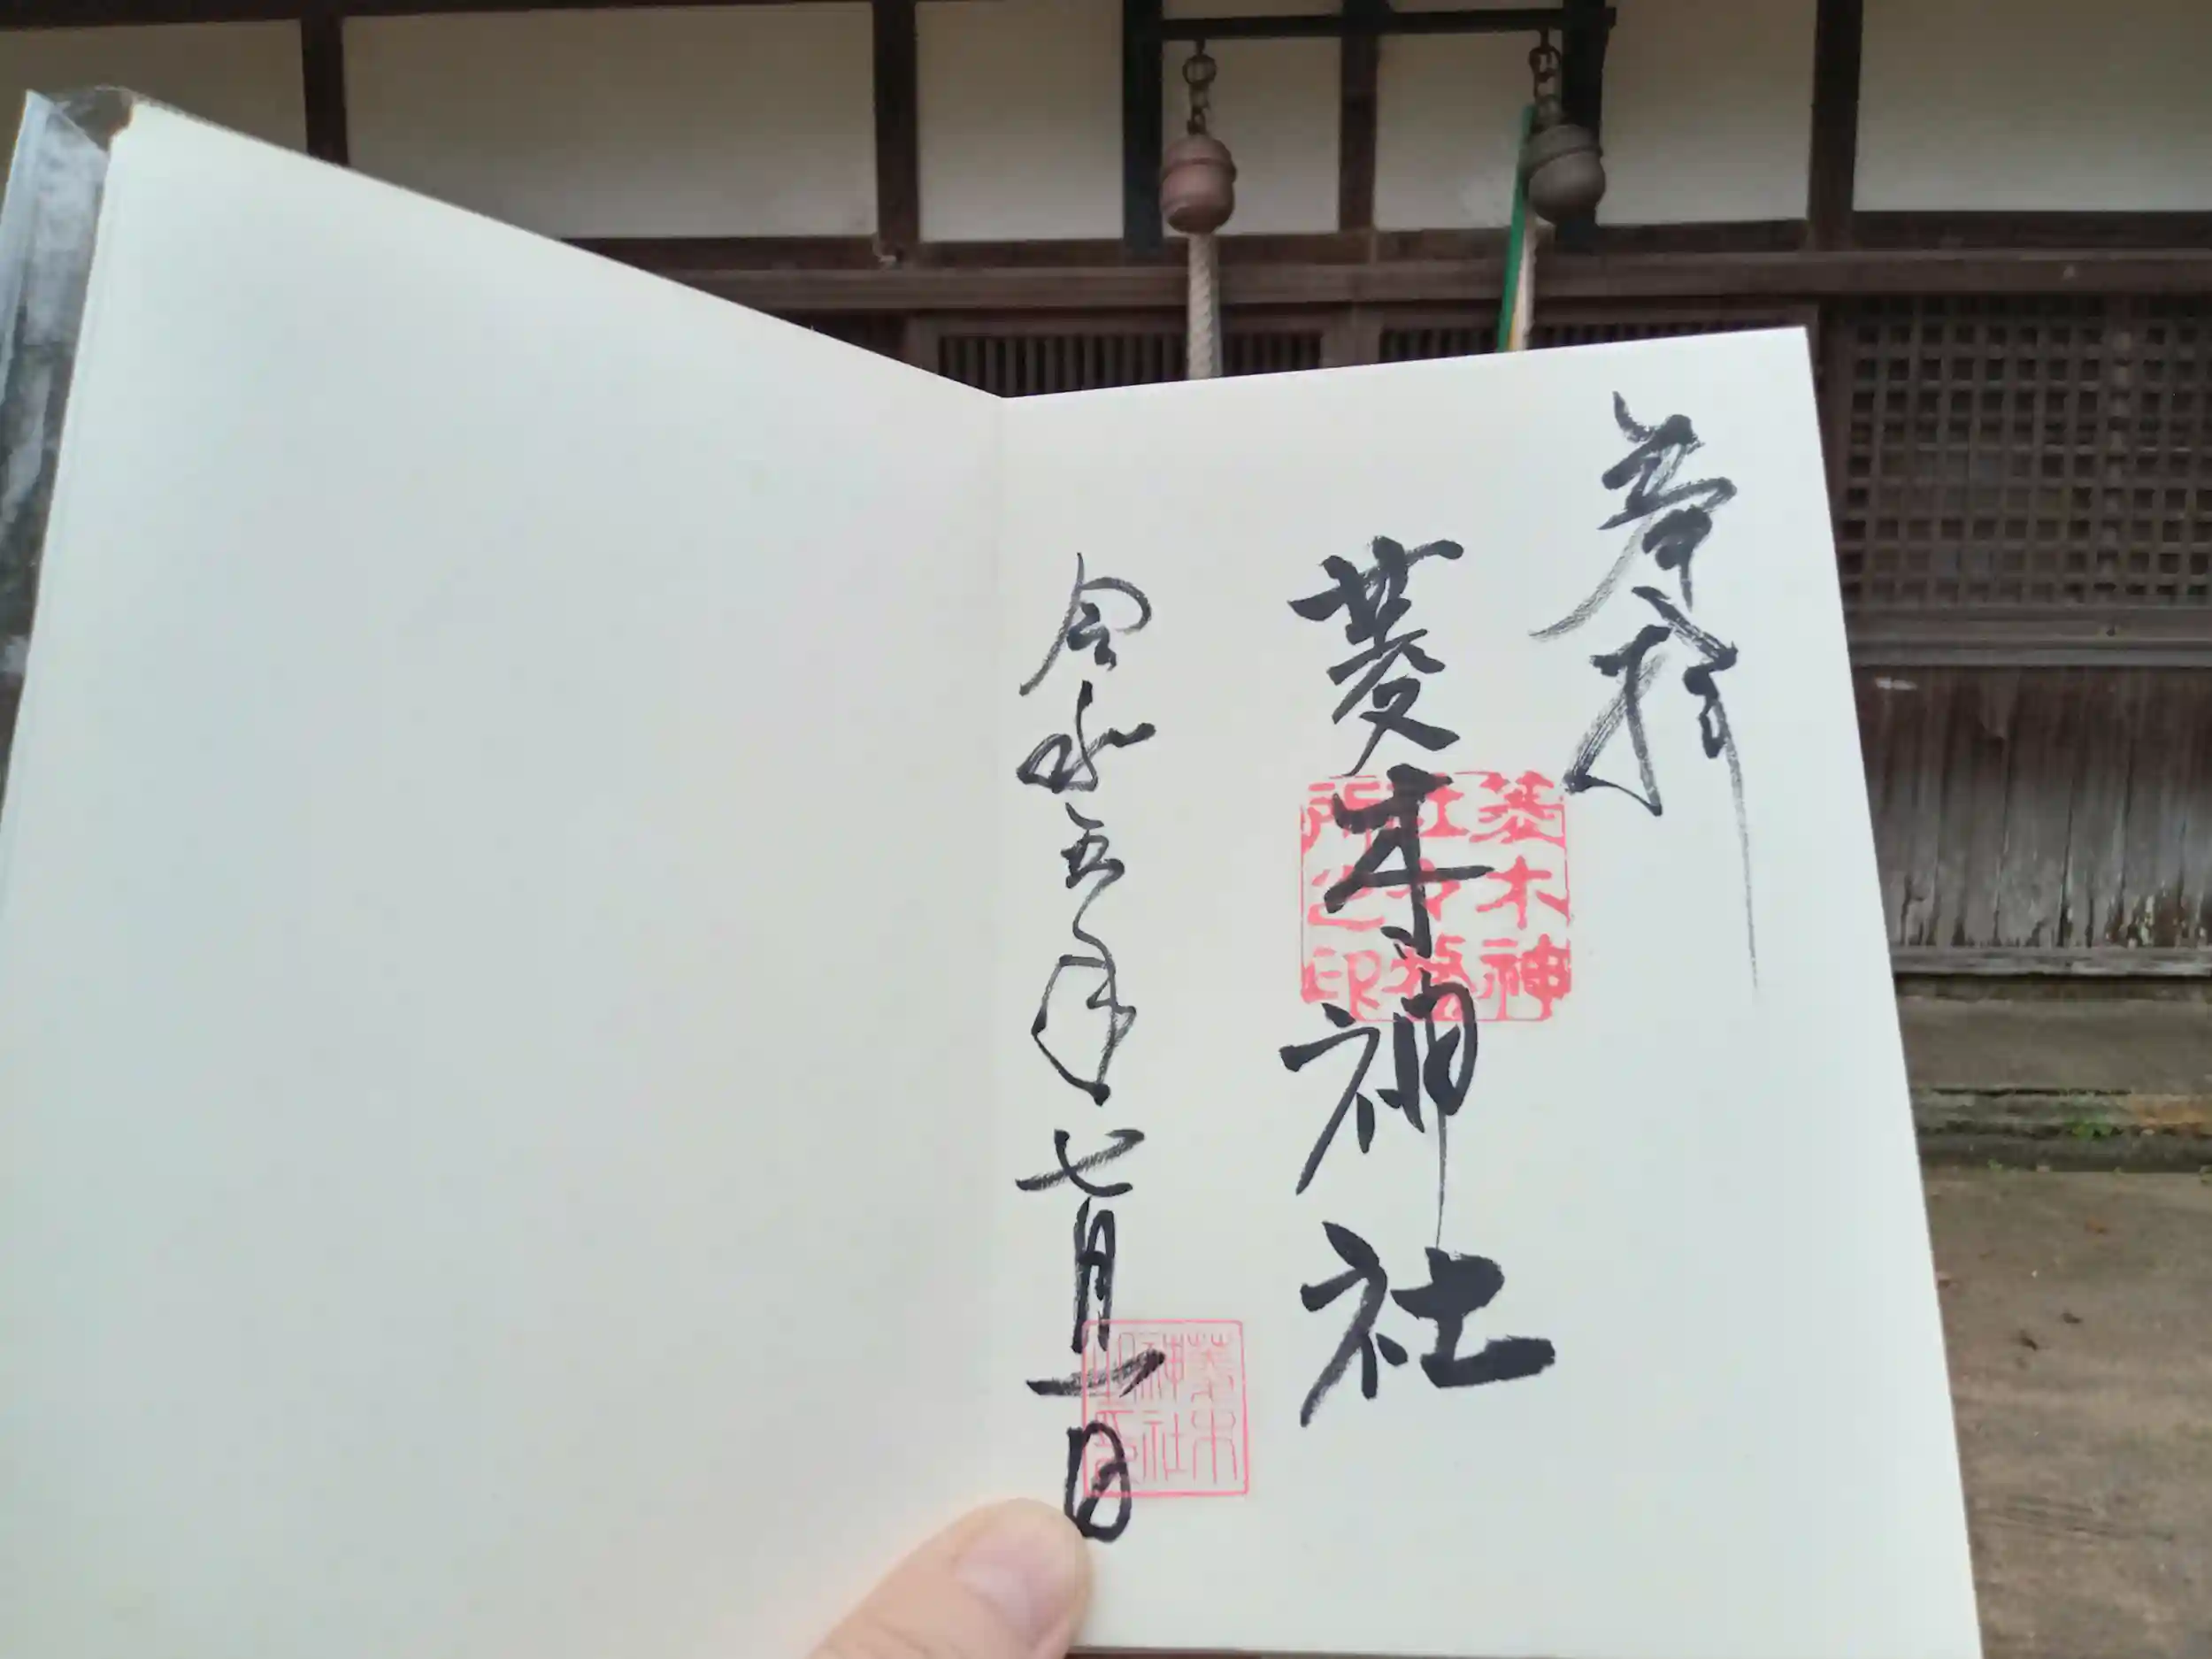 奉拝
菱木神社
菱木神
社々務
所之印
令和五年七月一日
菱木
神社
之印